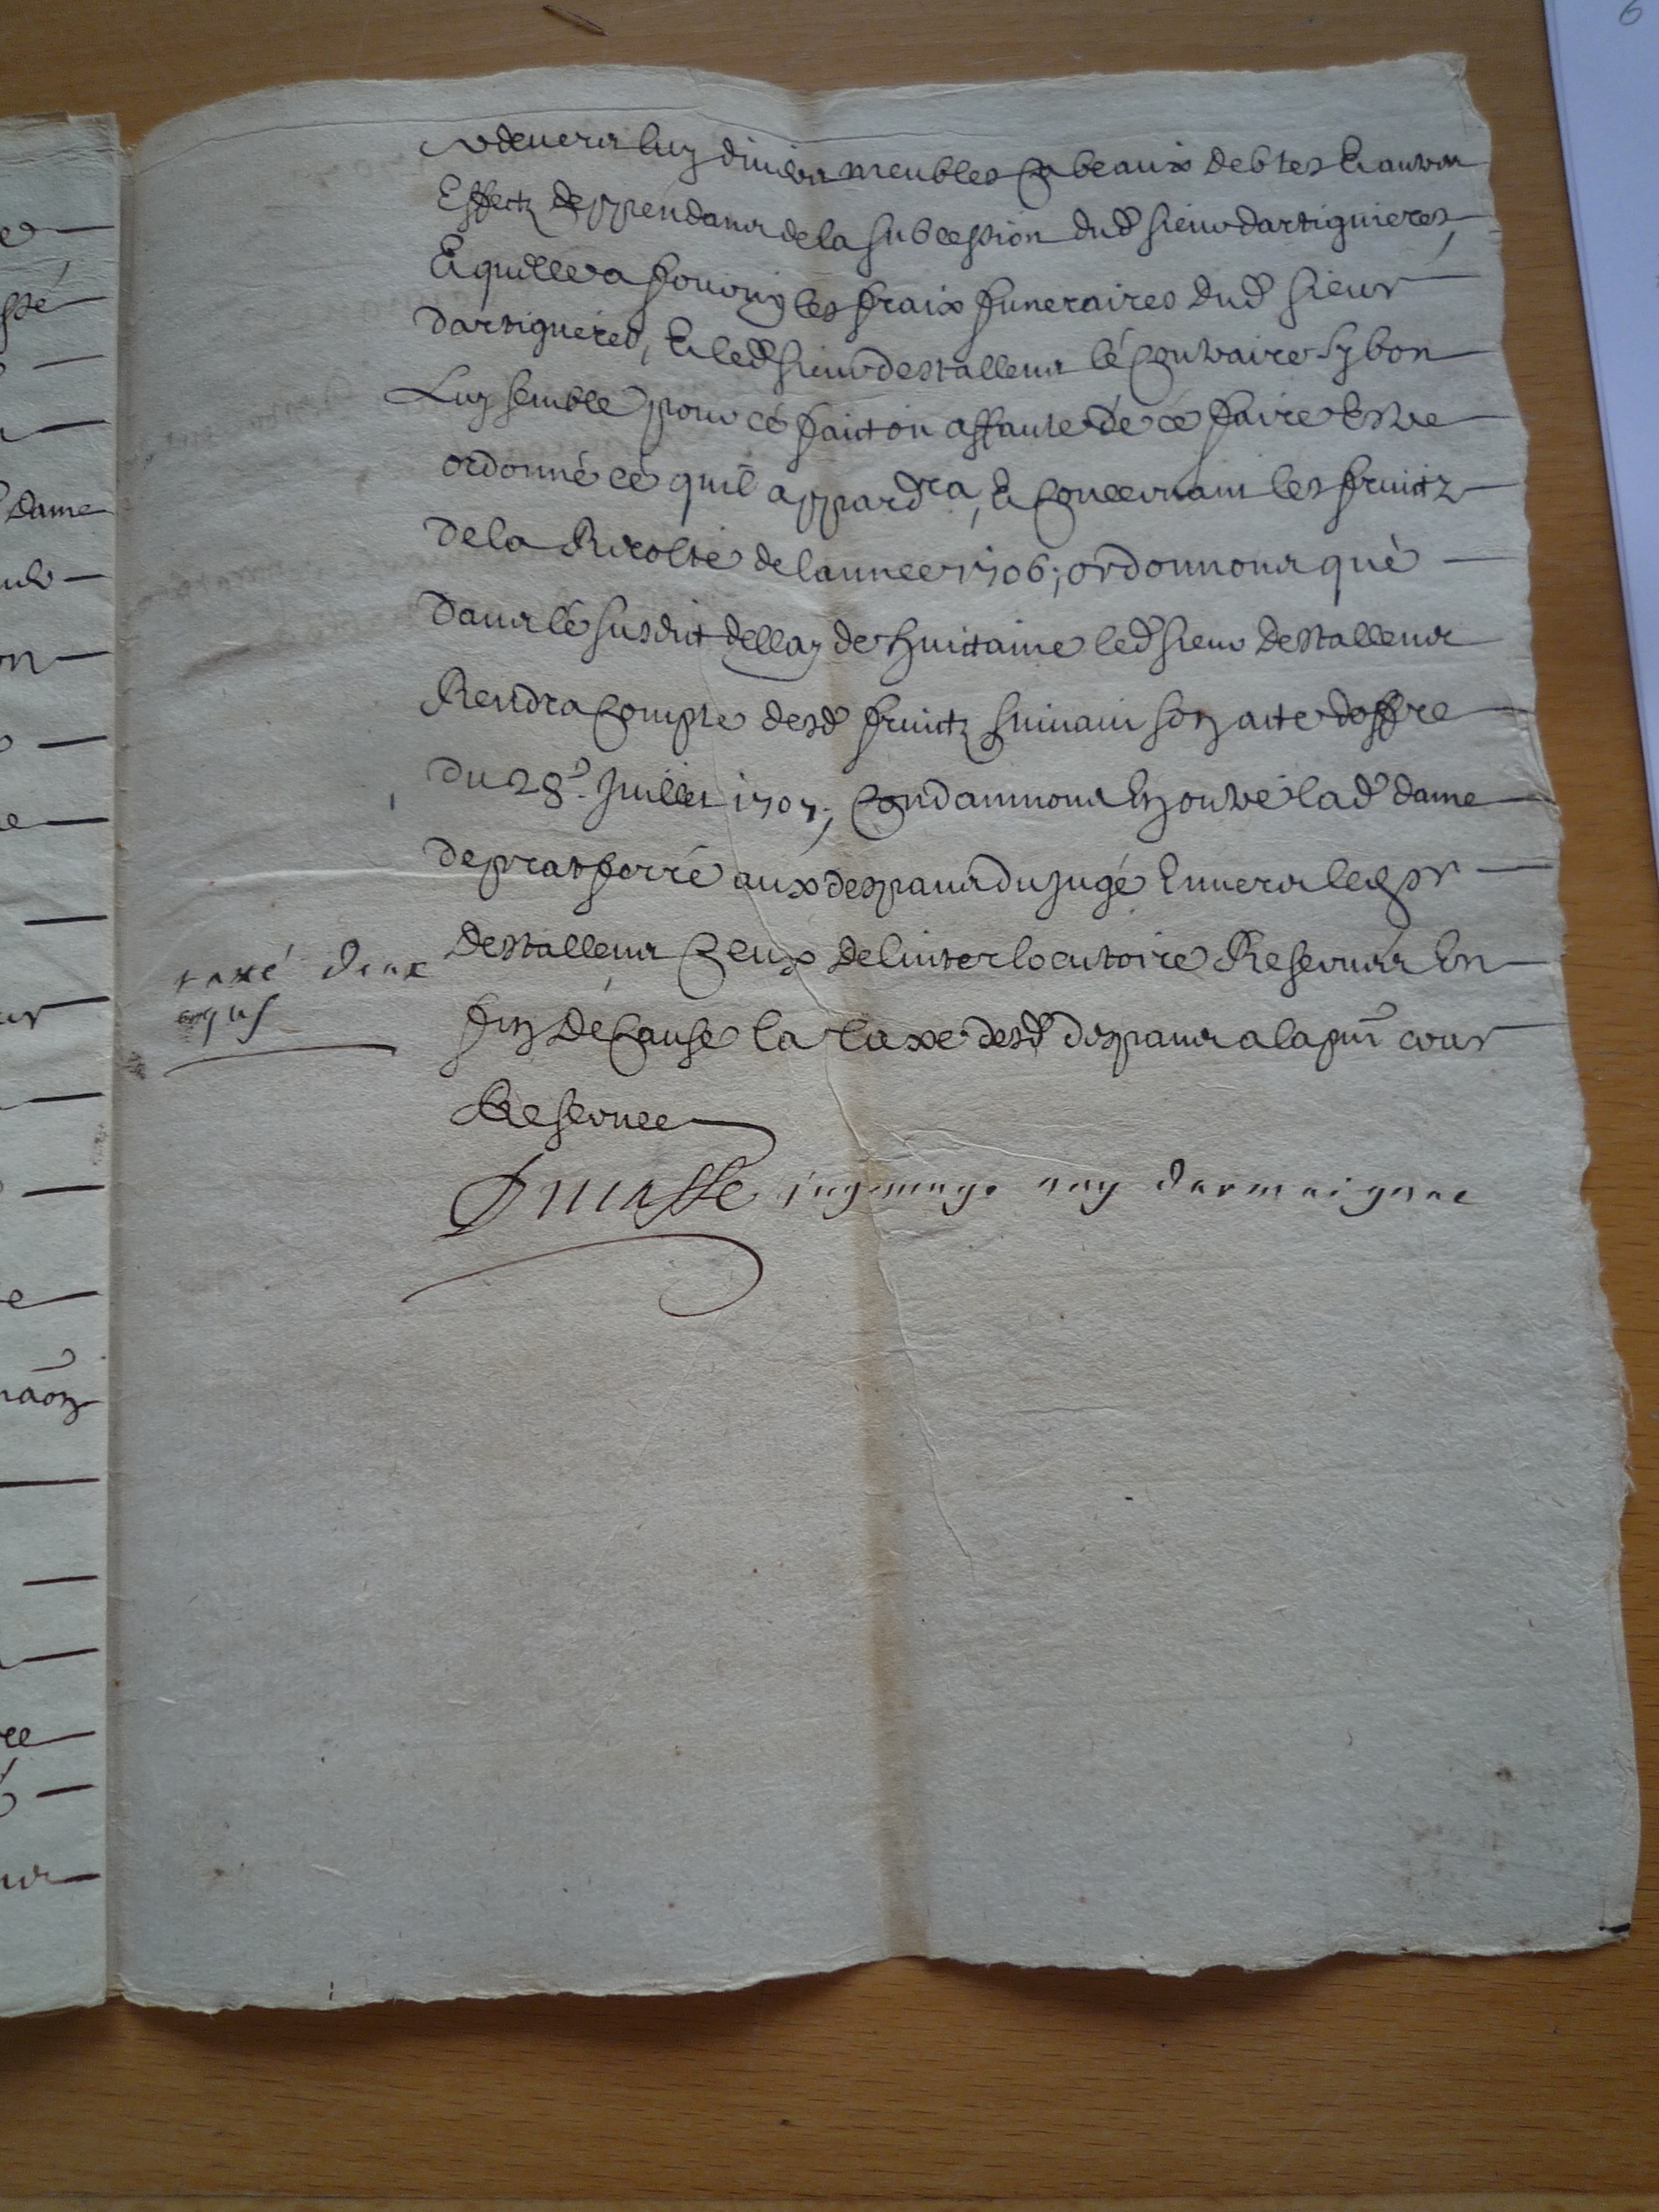 devers luy divers meubles cabeaux debtes & autres
Effectz deppendans de la subcession dud sieur dartiguieres,
Et quelle a fourny les fraix funeraires dud sieur
dartiguieres, Et led sieur destallens lé contraire sy bon
Luy semble pour cé fait ou affaute dé cé faire Estre
ordonné cé quil appardra, Et concernant les fruitz
dela Recolte de lannee 1706; ordonnons qué
dans lé susdit dellay de huittaine led sieur destallens
Rendra compte desd fruitz suivant son acte doffre
du 28e. Juillet 1707; Condamnons En outre lad dame
de pratferré aux despans du jugé Envers led sr
destallens ceux de linterlocutoire Reservés En
fin dé cause la taxe desd despans a la pnt cour
Reservee
taxé deux
equs
Dmasse jugemage
darmaignac
6
dame